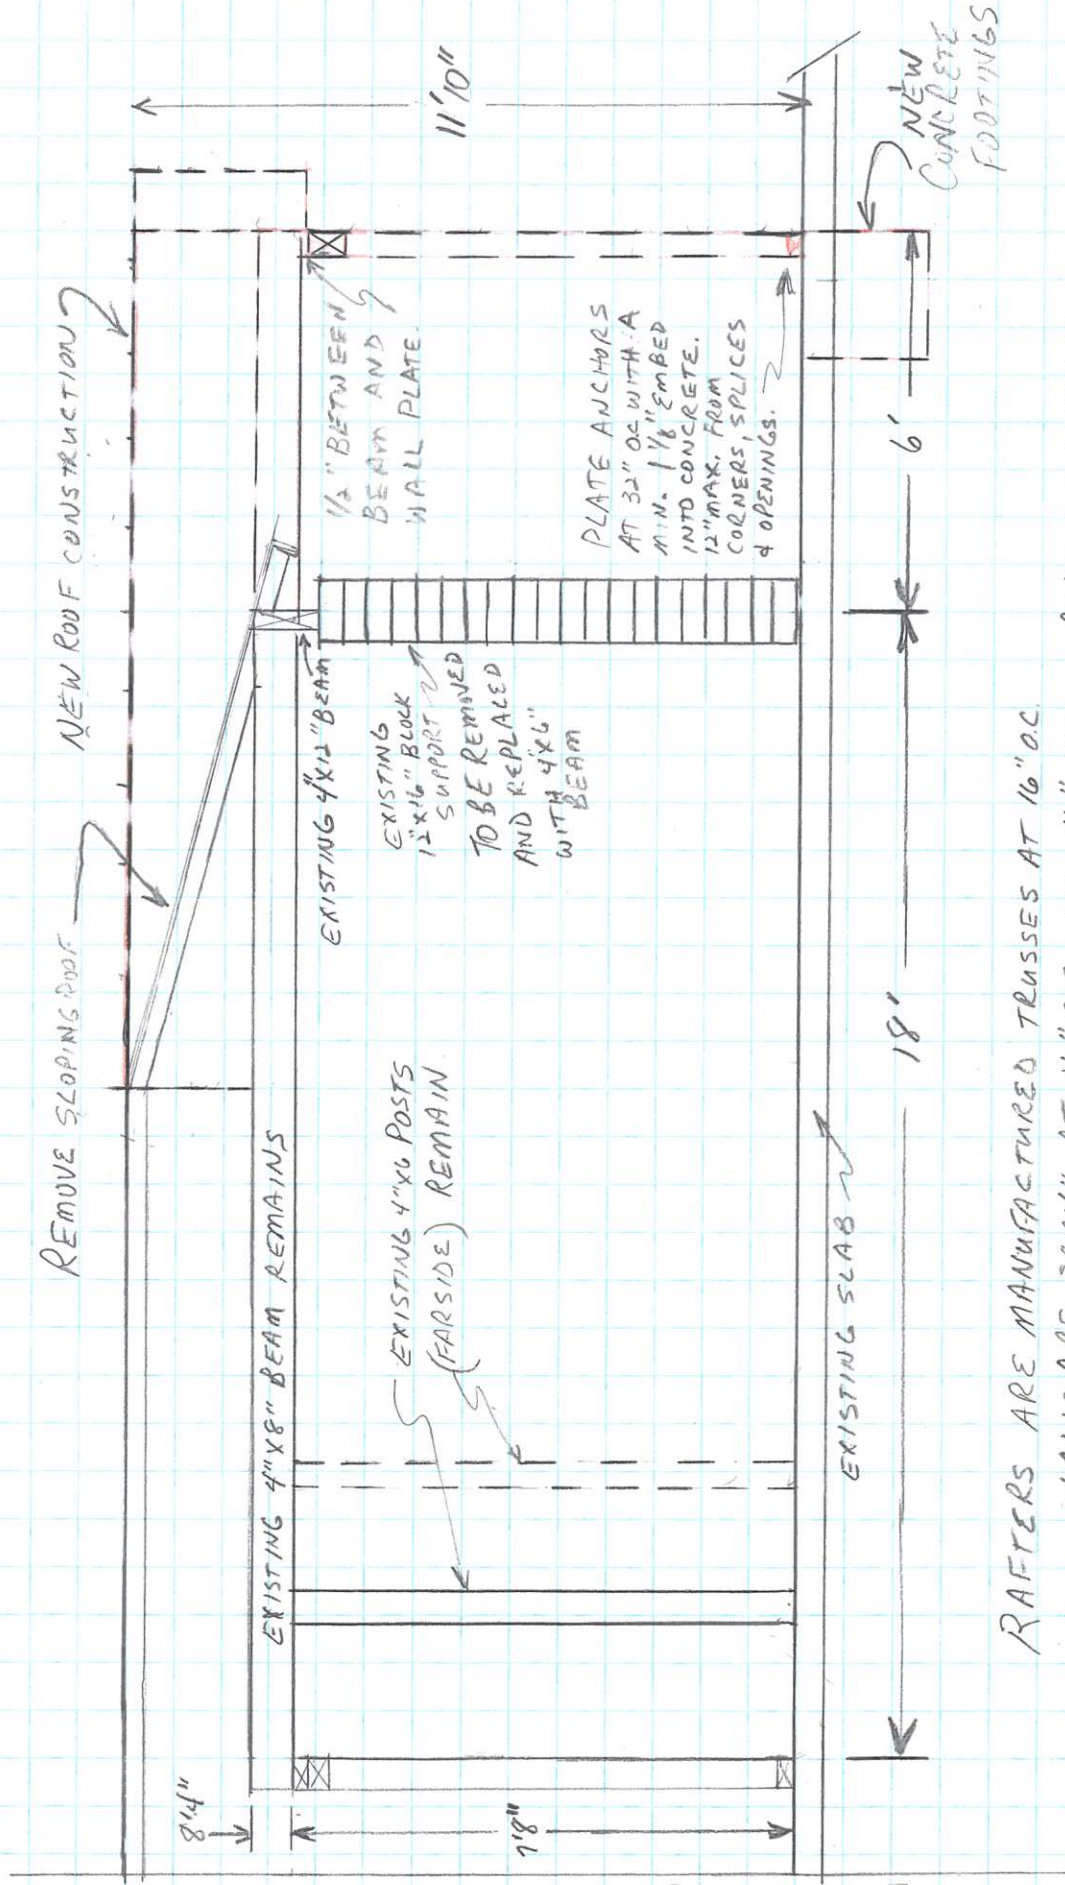 REMOVE SLOPING ROOF
NEW ROOF CONSTRUCTION
8'4"
EXISTING 4"X8" BEAM REMAINS
7'8"
EXISTING 4"X6 POSTS
(FARSIDE) REMAIN
EXISTING 4"X12" BEAM
EXISTING
12"X16" BLOCK
SUPPORT
TO BE REMOVED
AND REPLACED
WITH 4"X6"
BEAM
1/2" BETWEEN
BEAM AND
WALL PLATE.
PLATE ANCHORS
AT 32" O.C WITH A
MIN. 1 1/8" EMBED
INTO CONCRETE.
12" MAX. FROM
CORNERS, SPLICES
& OPENINGS.
11'10"
NEW
CONCRETE
FOOTINGS
EXISTING SLAB
18'
6'
RAFTERS ARE MANUFACTURED TRUSSES AT 16" O.C.